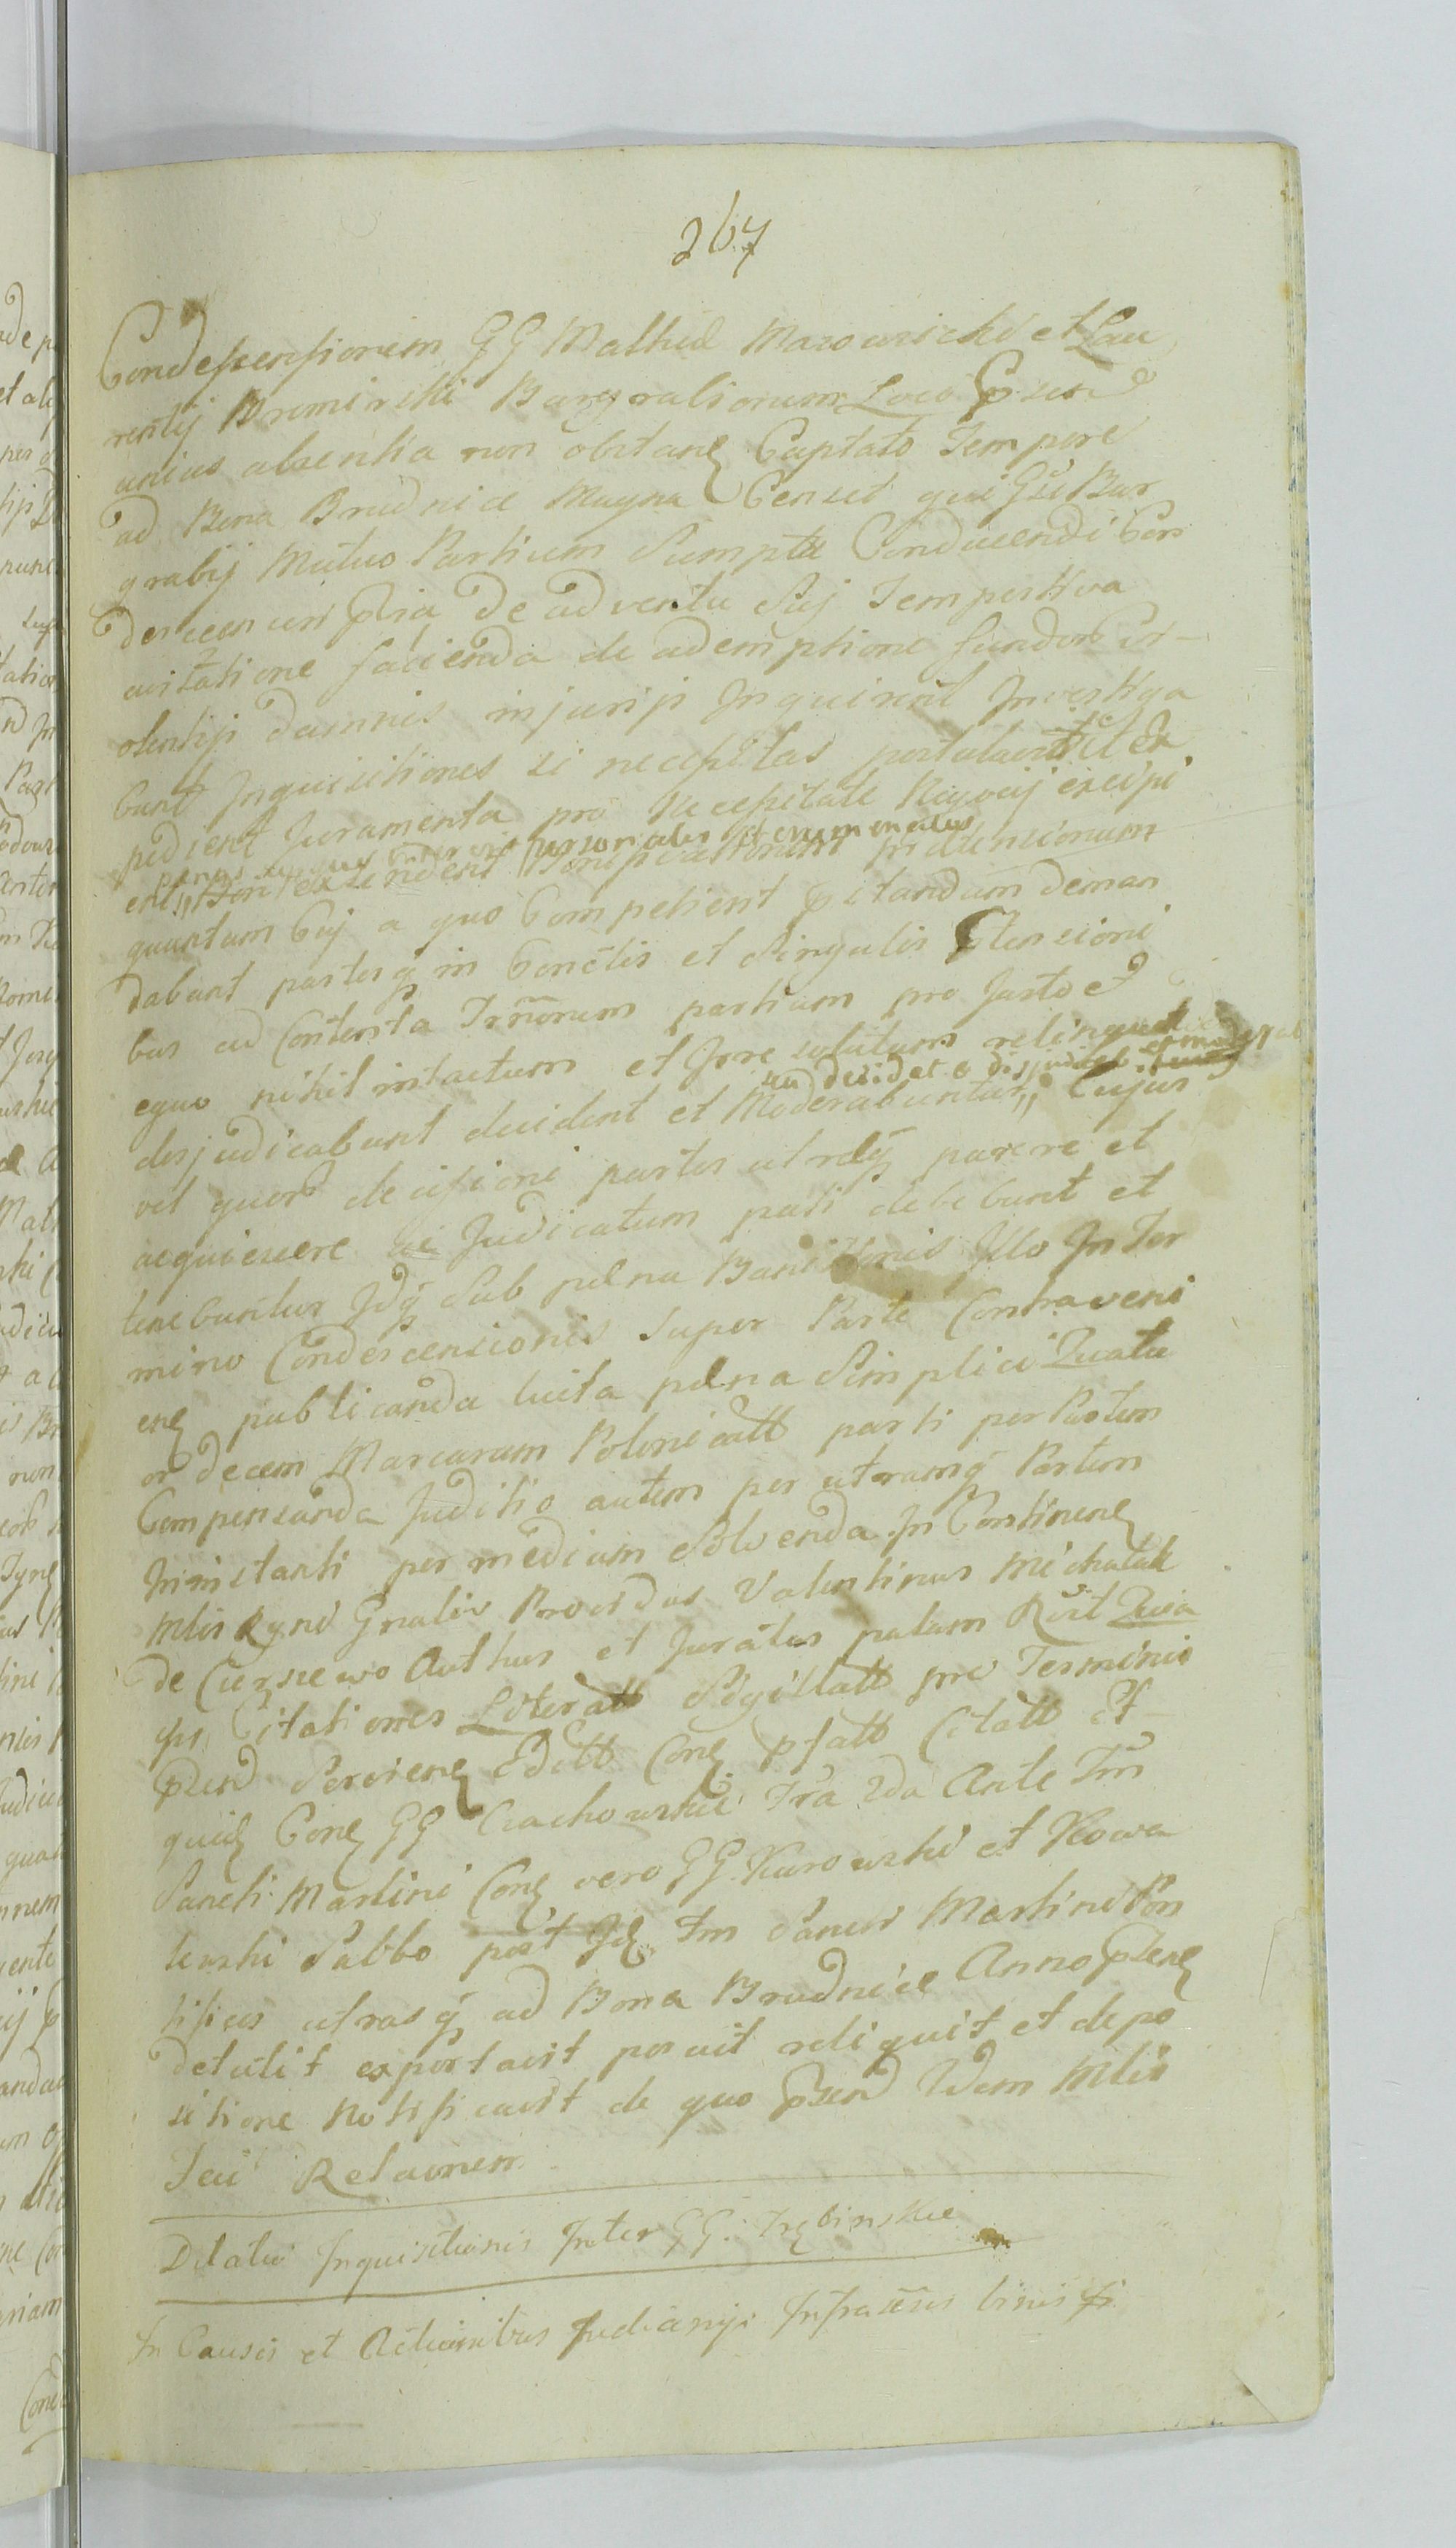 267
Condescensionem GG Mathiae Mazowiecki et Lau
rentij Bromirski Burgrabiorum Loco Gsen
unius absentia non obstan Captato Tempore
ad Bona Brudnice Magna Censet qui Gsi Bur
grabij Mutuo Partium Sumptu Conducendi Con
descensuri pia De adventu Suj Tempestiva
avisatione facienda de ademptione fundor vi-
olentijs damnis injurijs Inquirent Investiga
bunt Inquisitiones si necessitas postulaverit Ex
pedient Juramenta pro Necessitate Negocij excipi
ent personales et criminales
extendent praetensionum
quantum Cuj a quo Competient pstandum deman
dabunt partesq in Cunctis et Singulis ptensioni
bus ad Contenta Trnorum partium pro Justo et
equo nihil intactum et Irresolutum relinquet
disjudicabunt decident et Moderabuntur Cujus
decidet et disjudicet
vel quor decisioni partes utrq parere et
acquiescere ac Judicatum pati debebunt et
tenebuntur Idq Sub paena Bannitionis Illo In Ter
mino Condescensionis Super Parte Contraveni
en publicanda luita paena Simplici Quatu
or decem Marcarum Polonicall parti per Partem
Compensanda Juditio autem per utramq Partem
Ininstanti per medium Solvenda In Continen
Mlis Rgni Gnalis Providus Valentinus Michalak
de Cierszewo Authus et Juratus palam Rcit Quia
ips Citationes Literatt Sigillatt pro Termino
psend Servien Editt Con psatt Citatt Et-
quid Con GG Czachowskie Fra 2da Ante Fm
Sancti Martini Con vero GG. Kurowski et Kowa
lewski Sabbo post Id Fm Sancti Martini Pon
tificis utrasq ad Bona Brudnice Anno psen
detulit exportavit posuit reliquit et depo
sitione Notificavit de quo psend Idem Mlis
Feci Relaonem
Dilatio Inquisitionis Inter GG: Trębinskie
In Causis et Actionibus Judicarijs Infrascris binis si